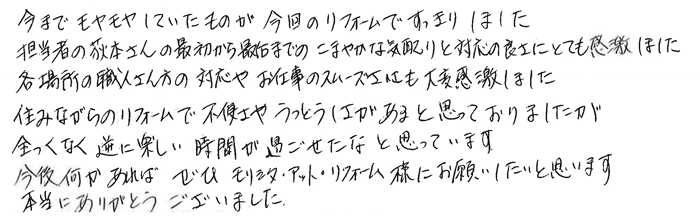 今までモヤモヤしていたものが今回のリフォームですっきりしました
担当者の荻本さんの最初から最后までのこまやかな気配りと対応の良さにとても感激しました
各場所の職人さん方の対応やお仕事のスムーズさにも大変感激しました
住みながらのリフォームで不便さやうっとうしさがあると思っておりましたが
全っくなく逆に楽しい時間が過ごせたなと思っています
今後何かあれば ぜひ モリシタ・アット・リフォーム様にお願いしたいと思います
本当にありがとうございました.